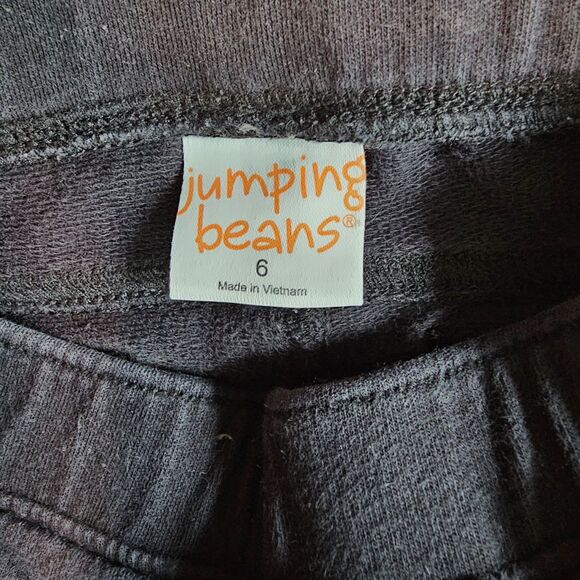 jumping
beans®
6
Made in Vietnam